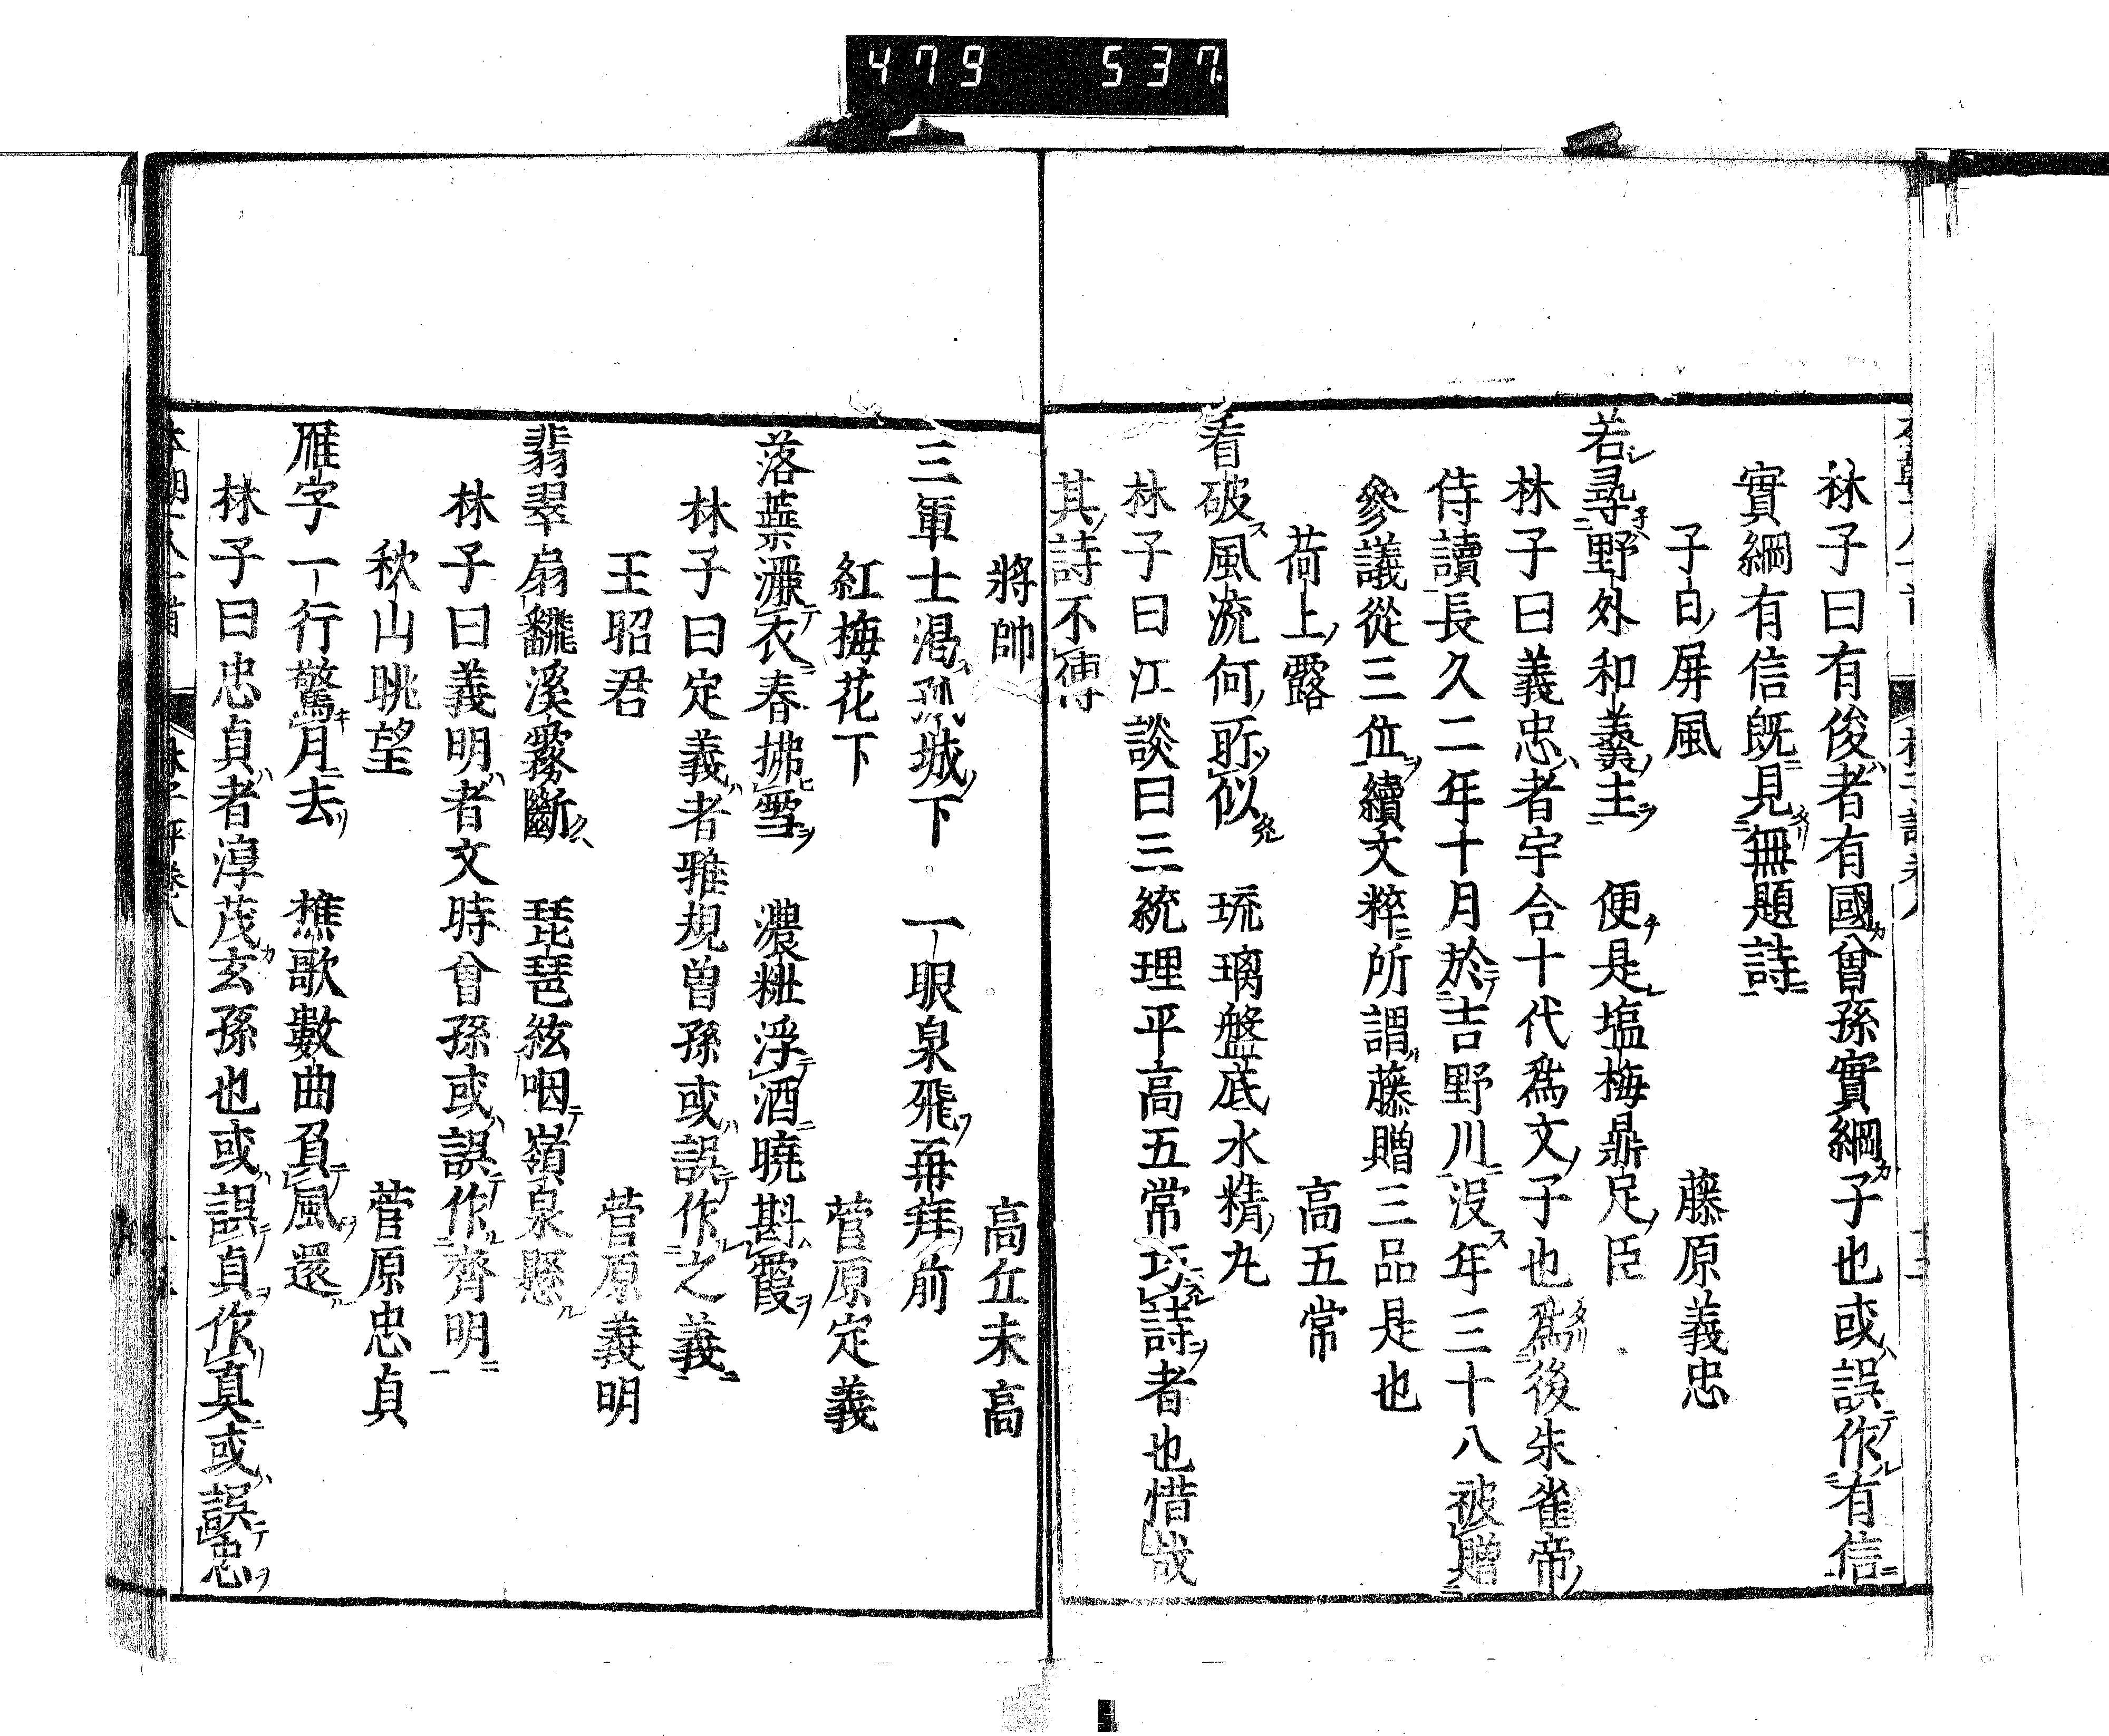 479 537
林子曰有俊者有國曾孫實綱子也或誤作有信
實綱有信既見無題詩
子日屏風 藤原義忠
若尋野外和羹主 便是塩梅鼎足臣
林子曰義忠者宇合十代爲文子也爲後朱雀帝
侍讀長久二年十月於吉野川没年三十八被贈
參議從三位續文粹所謂藤贈三品是也
荷上露 高五常
看破風流何所似 琉璃盤底水精丸
林子曰江談曰三統理平高五常巧詩者也惜哉
其詩不傳
將帥 高丘末高
三軍士渇孤城下 一眼泉飛再拜前
紅梅花下 菅原定義
落蘂灑衣春拂雪 濃粧浮酒曉斟霞
林子曰定義者雅規曽孫或誤作之義
王昭君 菅原義明
翡翠扇飜溪霧斷 琵琶絃咽嶺泉懸
林子曰義明者文時曾孫或誤作齊明
秋山眺望 菅原忠貞
雁字一行驚月去 樵歌數曲負風還
林子曰忠貞者淳茂玄孫也或誤貞作真或誤忠